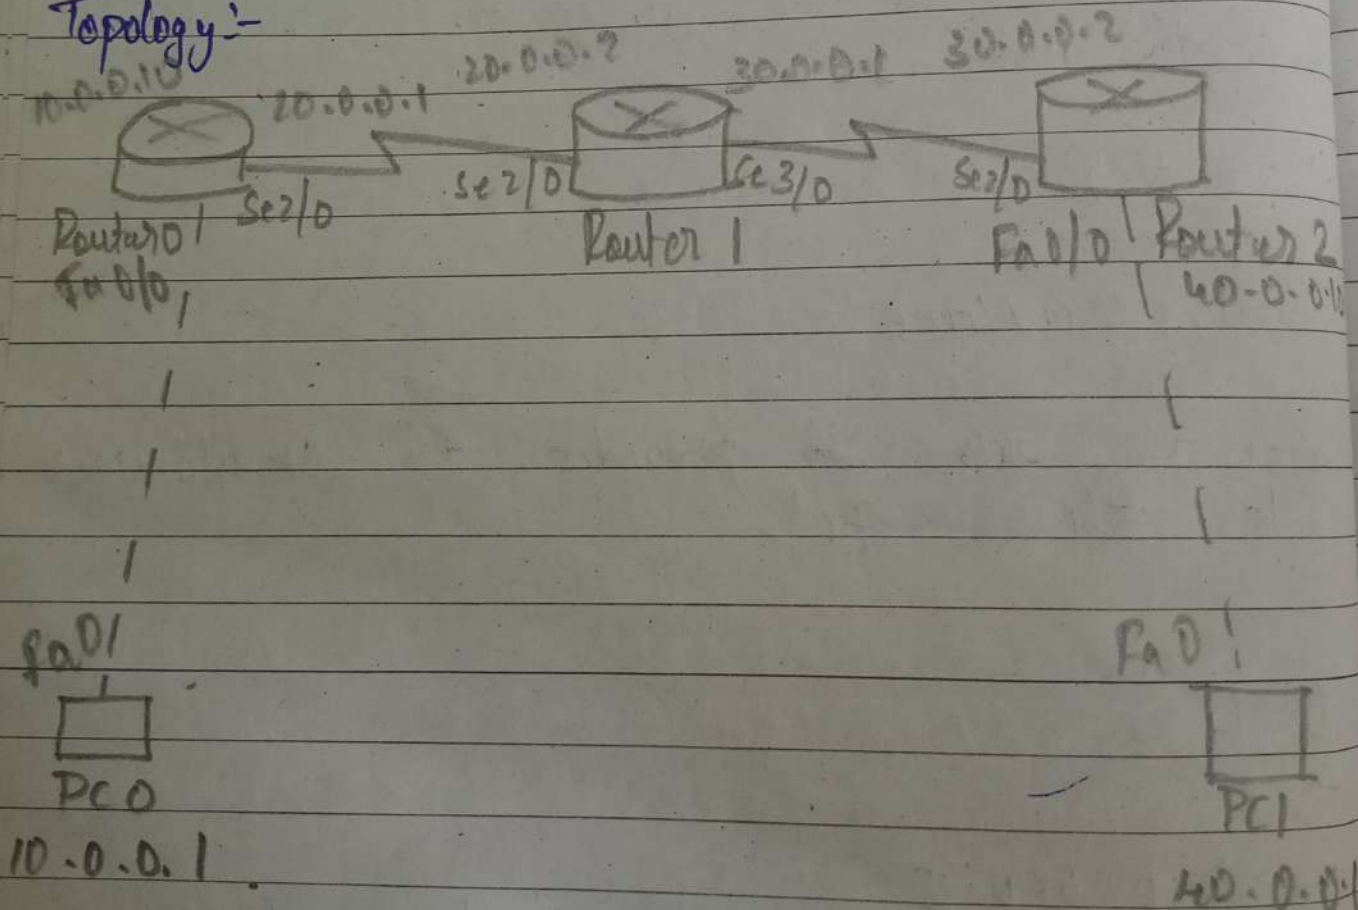 Topology:-
10.0.0.10 20.0.0.1 20.0.0.2 30.0.0.1 30.0.0.2
Se2/0 Se2/0 Se3/0 Se2/0
Router0 Router 1 Fa0/0 Router 2
Fa0/0 40.0.0.
Fa0 Fa0
PC0 PC1
10.0.0.1 40.0.0.1